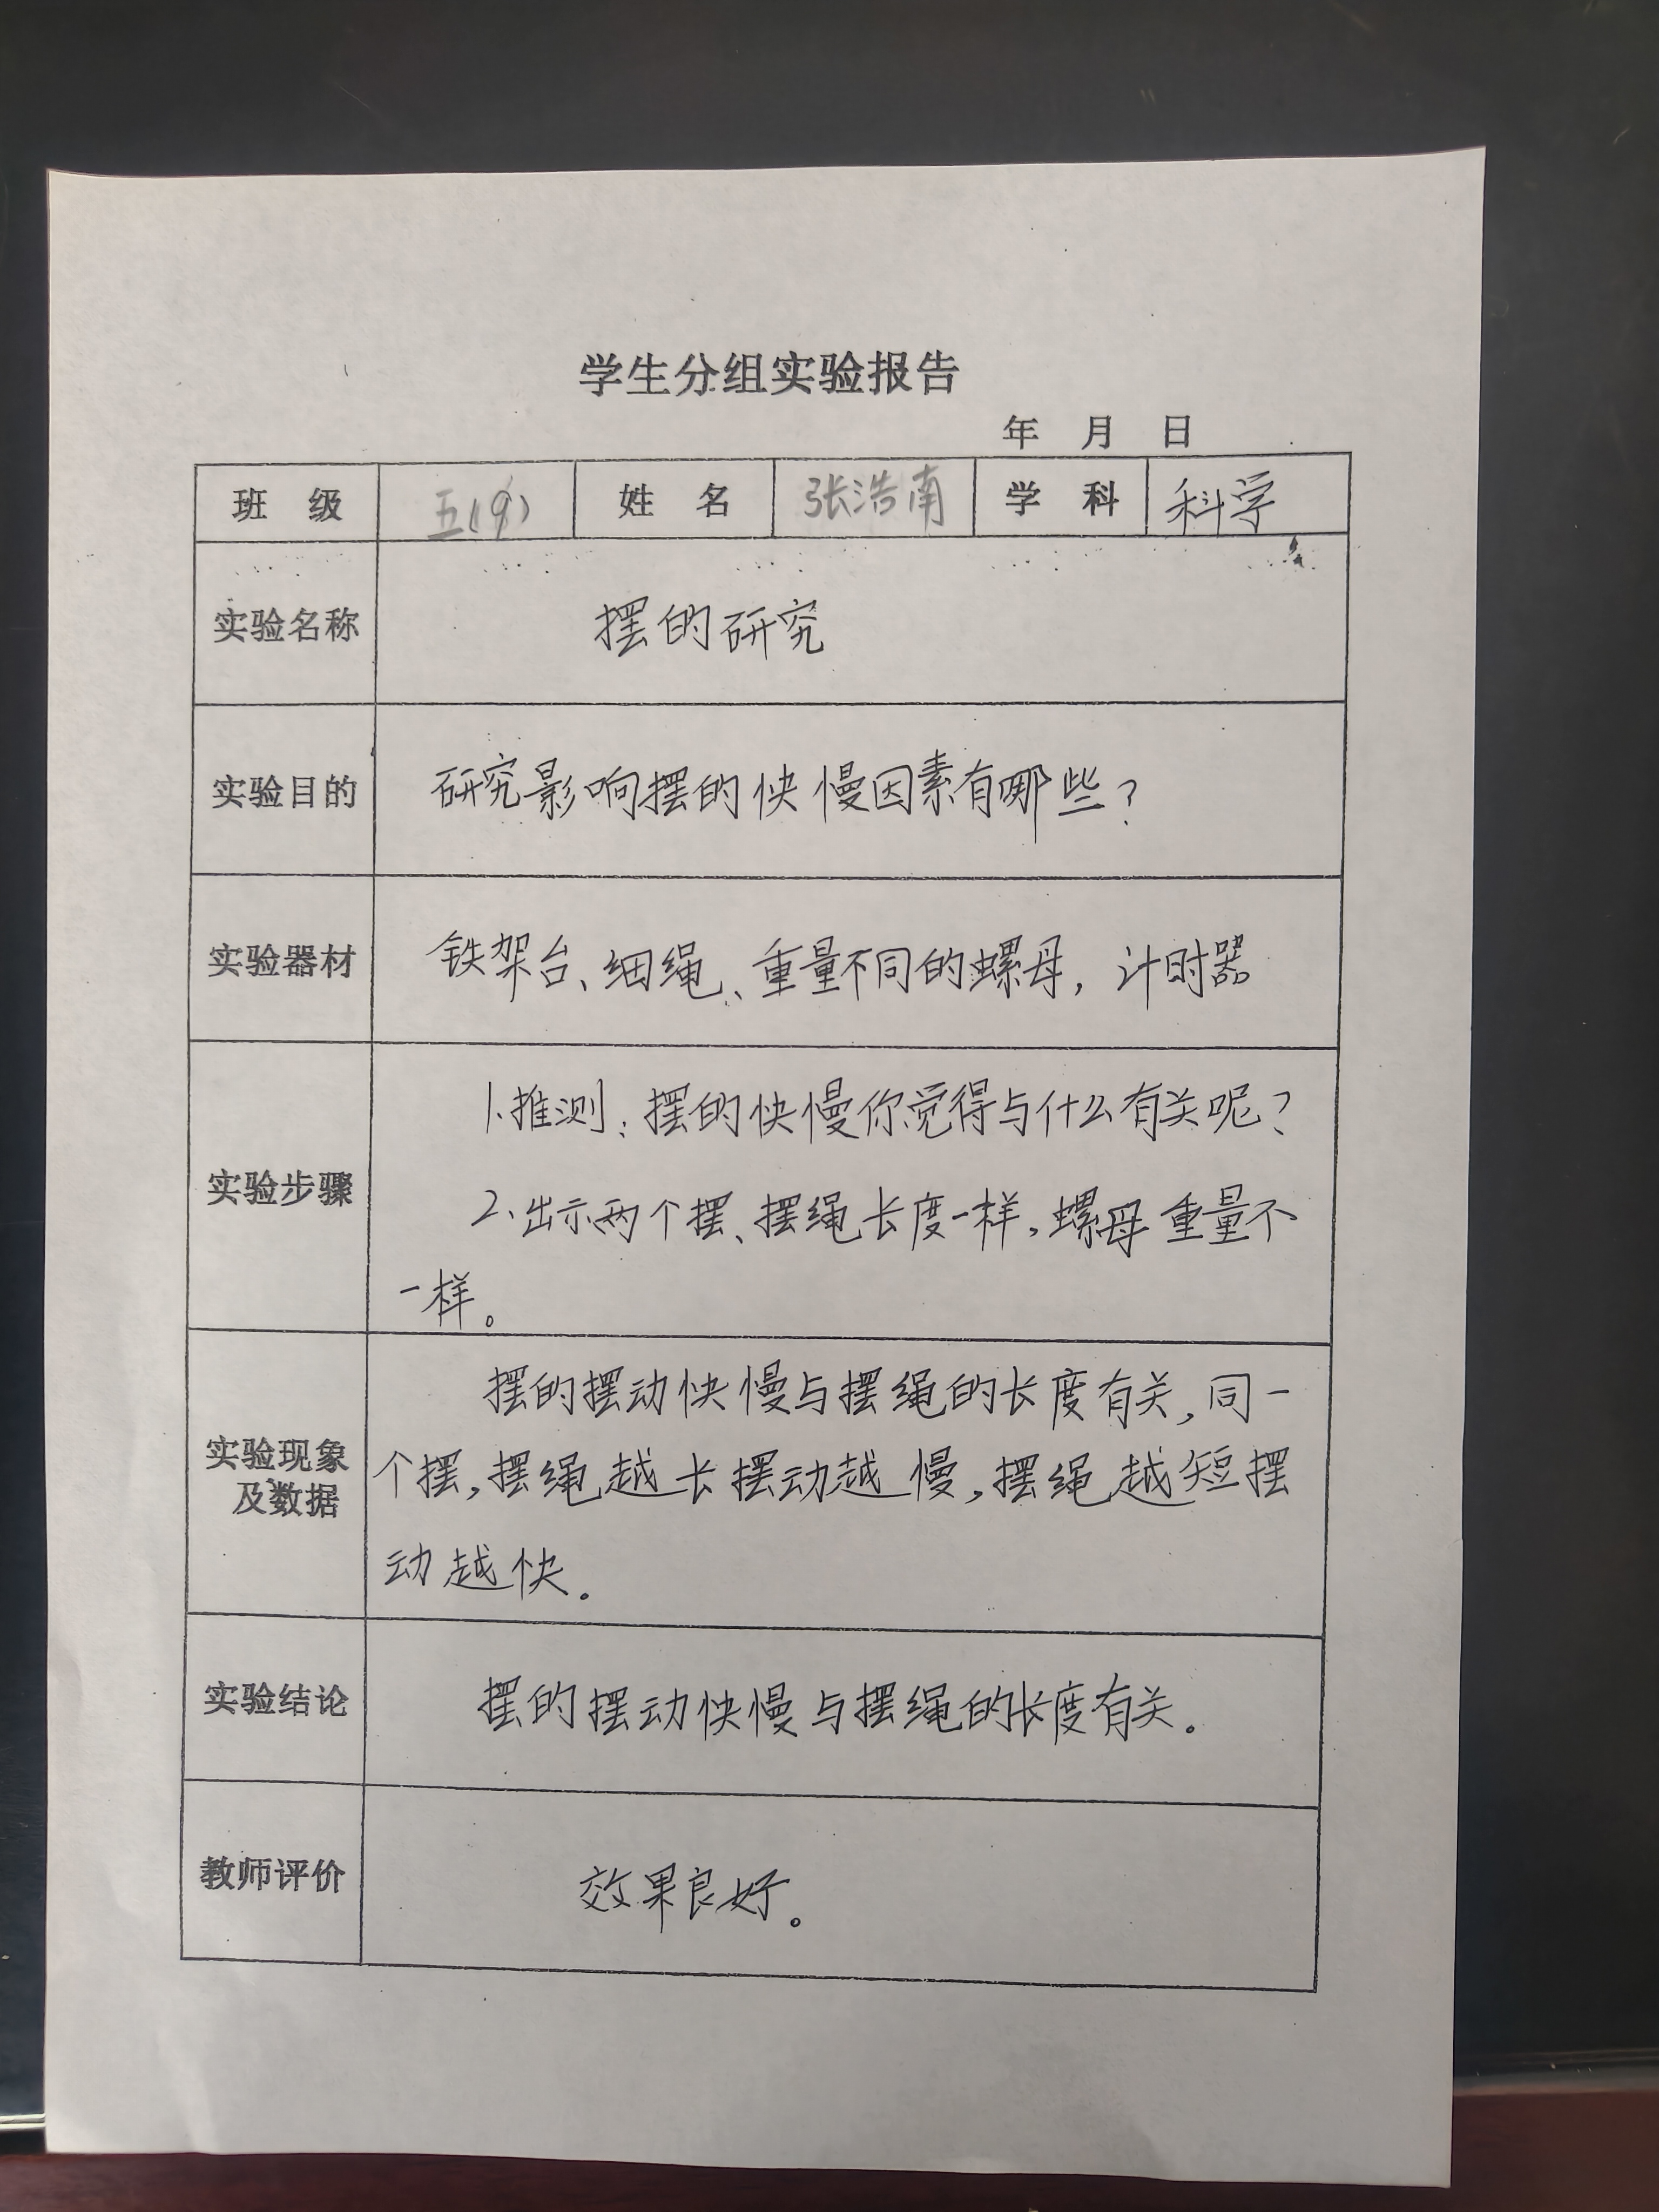 学生分组实验报告
年 月 日
班 级 五(9) 姓 名 张浩南 学 科 科学
实验名称 摆的研究
实验目的 研究影响摆的快慢因素有哪些?
实验器材 铁架台、细绳、重量不同的螺母, 计时器
1.推测: 摆的快慢你觉得与什么有关呢?
实验步骤
2、出示两个摆、摆绳长度一样,螺母重量不
一样。
摆的摆动快慢与摆绳的长度有关,同一
实验现象
个摆,摆绳越长摆动越慢,摆绳越短摆
及数据
动越快。
实验结论 摆的摆动快慢与摆绳的长度有关。
教师评价 效果良好。